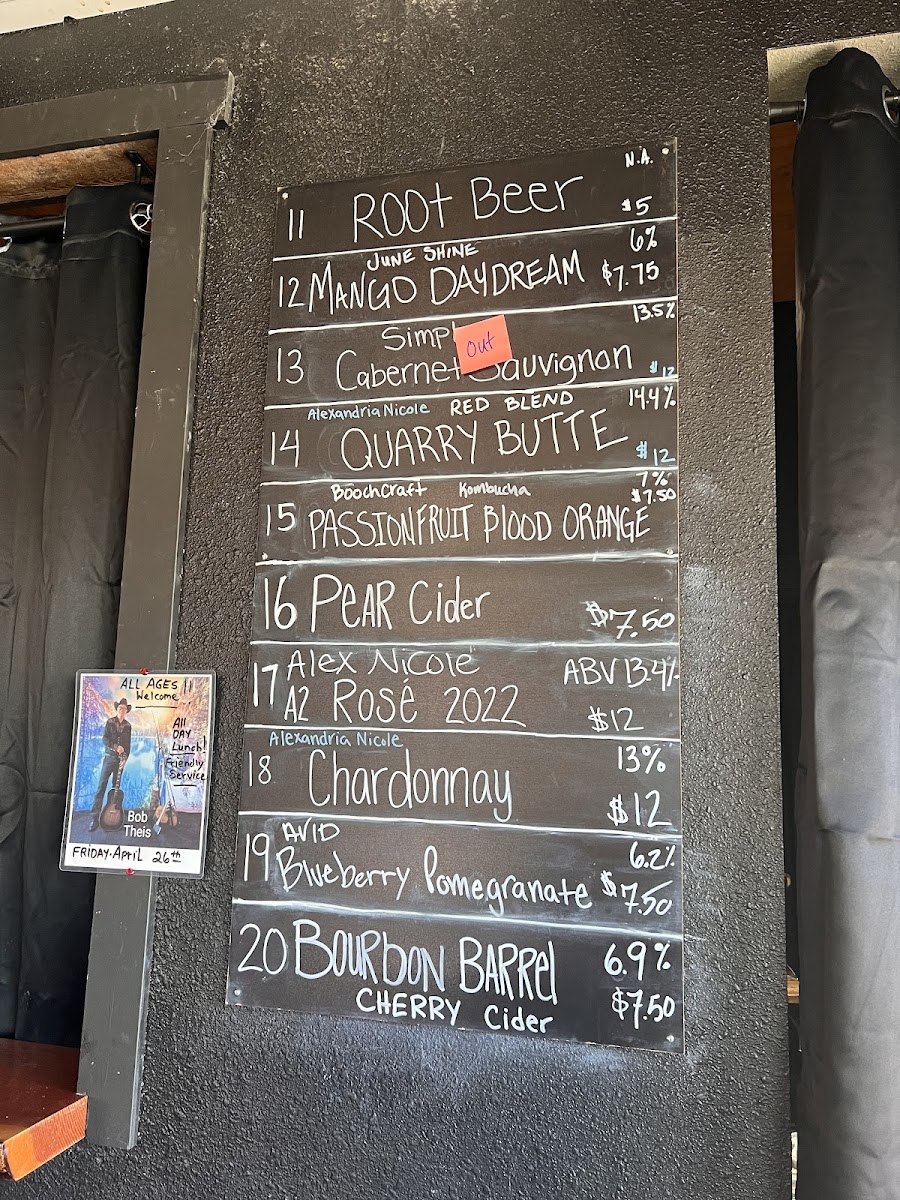 N.A.
11 ROOt Beer $5
6%
JUNE SHINE
12 MANGO DAYDREAM $7.75
13.5%
Simpl
out
13 Cabernet Sauvignon $12
Alexandria Nicole RED BLEND 14.4%
14 QUARRY BUTTE $12
7%
BoochCraft Kombucha $7.50
15 PASSIONFRUIT BlOOD ORANGE
16 PEAR Cider $7.50
17 Alex Nicole ABV 13.4%
A2 Rosé 2022 $12
Alexandria Nicole
18 Chardonnay 13%
$12
AVID 6.2%
19 Blueberry Pomegranate $7.50
20 BOURbON BARRel 6.9%
CHERRY Cider $7.50
ALL AGES!!
Welcome
All
DAY
Lunch!
Friendly
Service
Bob
Theis
FRIDAY·APRIL 26th